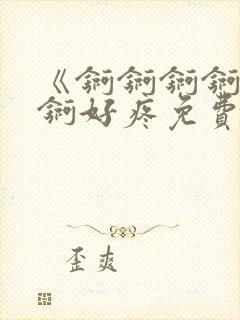 《锕锕锕锕
锕好疼免費
歪爽